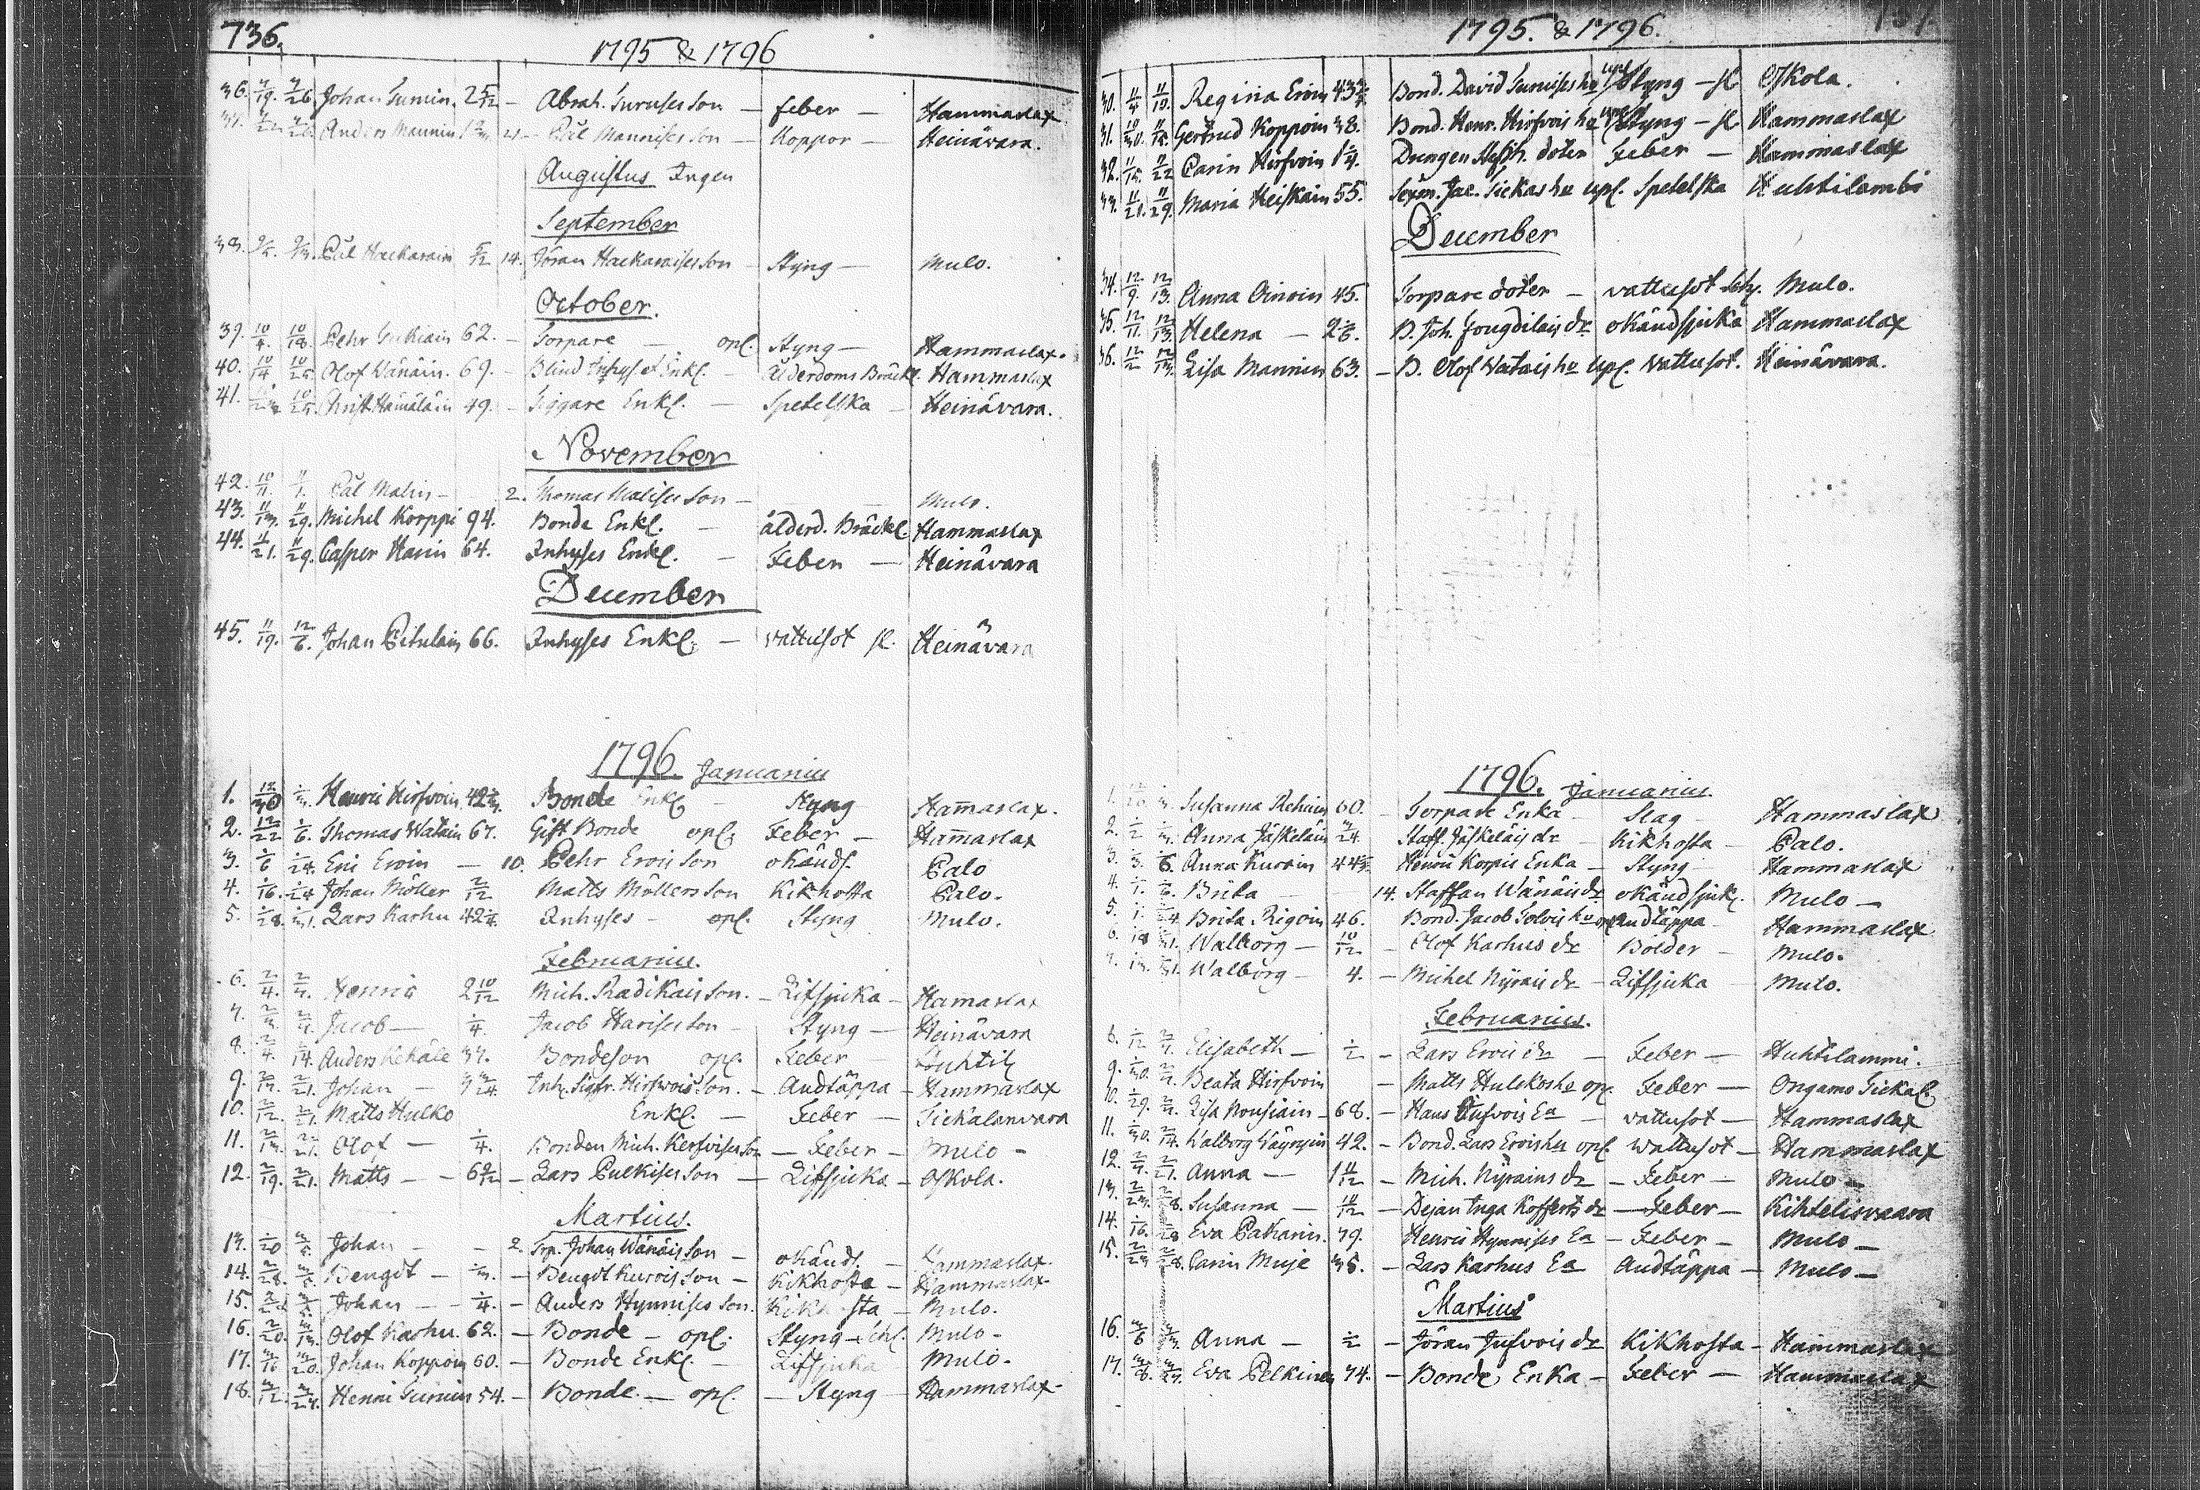 736.
1795 & 1796
36. 7/19. 7/26 Johan Turuin. 2 5/12 – Abrah. Turuises Son – feber – Hammaslax
37. Anders Mannin – Pål Mannises Son – Koppor – Heinävara.
Augustus Ingen
September
38. Pål Hackarain 5/12 14. Jöran Hackaraises Son – Styng – Mulo.
October.
39. 10/4. 10/18. Pehr 62. – Torpare – opl. Styng – Hammaslax.
40. 10/14 10/25. Olof Wänäin. 69. – Blind Inhyses Enkl. – ålderdoms Bräckl. Hammaslax
41. 10/25. Christ Hämäläin 49. – Enkl. – Spetelska – Heinävara.
November
42. 10/11. 11/1. Pål Malin – 2. Thomas Malises Son – – Mulo.
43. 11/13. 11/29. Michel Korppi 94. Bonde Enkl. – ålderd. Bräckl. Hammaslax
44. 11/21. 11/29. Casper Harin 64. Inhyses Enkl. – Feber – Heinävara
December
45. 11/19. 12/6. Johan Pitulain 66. Inhyses Enkl. – vattusot Heinävara
1796. Januarius
1. 12/30 1/3. Henric Hirfvoin. 42 Bonde Enkl – Styng Ham̅aslax.
2. 12/22 1/6. Thomas Watain 67. Gift Bonde opl. Feber – Ham̅aslax
3. 1/6 1/24. Eric Eroin – 10. Pehr Erois Son okänd s. Palo
4. 1/16. 1/24. Johan Möller 2/12 Matts Möllers Son Kikhosta Palo.
5. 1/28. 1/31. Lars Karhu 42 Inhyses – opl. Styng Mulo.
Februarius.
6. 2/4. 2/7. Henric 2 10/12 Mich. Radikais Son. – Lifsjuka – Ham̅aslax
7. Jacob – 1/4. Jacob Harises Son Styng – Heinävara
8. 2/4. 2/14. Anders Kekäle 37. Bondeson opl. Feber –
9. 2/21. Johan – 3/24. Inh. Sigfr. Hirfwois Son. – Andtäppa – Hammaslax
10. 2/12. 2/21. Matts Hulko Enkl. – Feber – Tickalanvara
11. 2/13. 2/21. Olof – 1/4. Bonden Mich. Kerfvises Son – Feber – Mulo –
12. 2/19. 2/21. Matts – – 6 – Lars Pulkises Son – Lifsjuka – Oskola.
Martius.
13. Johan – – 2. Trp. Johan Wänäis Son – okänd s. – Hammaslax.
14. 2/28. Bengdt – 1/3. – Bengdt Kurois Son – Kikhosta – Hammaslax
15. Johan – – 1/4. – Anders Hynnises Son. Kikhosta – Mulo.
16. 2/20. 3/13. Olof Karhu. 62. – Bonde – opl. Styng Mulo –
17. 3/16 3/20. Johan Koppoin 60. – Bonde Enkl. – Lifsjuka Mulo.
18. 3/12. 3/27. Henric Turuin 54. – Bonde – opl. – Styng Hammaslax.
737.
1795. & 1796.
30. 11/4. 11/10. Regina Eroin 43 Bond. David Turuises hu upl. Styng – Oskola.
31. 10/30. 11/15. Gertrud Koppoin 38. Bond. Henr. Hirfvois hu upl. Styng – Hammaslax
32. 11/15. 11/22 Carin Hirfvoin 1 1/4. Drengen doter Feber – Hammaslax
33. 11/21. 11/29. Maria Heiskain 55. Sexm. Jac. Tickas hu upl. Spetelska Huhtilambi
December
34. 12/9. 12/13. Anna Oinoin 45. Torpare doter – vattusot Mulo.
35. 12/11. 12/13. Helena – 2 1/6. B. Joh. dr okänd sjuka Hammaslax
36. 12/2 12/13. Lisa Mannin 63. – B. Olof Watais hu upl. Vattusot. Heinävara.
1796. Januarius.
1. Susanna Rehuin 60. – Torpare Enka – Slag – Hammaslax
2. Anna Jäskeläin 3/24. Staff. Jäskeläis dr – Kikhosta – Palo.
3. Anna Kuroin 44 Henric Korpis Enka – Styng – Hammaslax
4. Brita – 14. Staffan Wänäis dr okänd sjukl. Mulo –
5. Brita Rigoin 46. Bond. Jacob Tolvis hu Andtäppa Hammaslax
6. Walborg – 10/12 – Olof Karhus dr Bölder – Mulo.
7. Walborg – 4. – Michel Nyrais dr – Lifsjuka Mulo.
Februarius.
Elisabeth – 1/2 – Lars Erois dr – Feber – Huhtilammi.
9. 1/30. Beata Hirfvoin – Matts Hulckos hu opl. Feber – Ongamo
10. 1/29. Lisa Nousiain – 68. – Hans Ea – vattusot – Hammaslax
11. 1/30. 2/14. Walborg 42. – Bond. Lars Erois hu opl. Wattusot – Hammaslax
12. Anna – 1 11/12 – Mich. Nyrains dr – Feber – Mulo –
13. Susanna – 11/12 – Dejan Inga Kofferts dr – Feber – Kihtelisvaara
14. 1/16. 2/28 Eva Pakarin. 79. Henric Hynnises Ea – Feber – Mulo –
15. 2/23 2/28. Carin Muje 35. – Lars Karhus Ea Andtäppa – Mulo –
Martius
16. 3/6 Anna – 1/2 – Jöran dr Kikhosta – Hammaslax
17. 3/8. 3/27. Eva Pelkinen 74. – Bonde Enka – Feber – Hammaslax